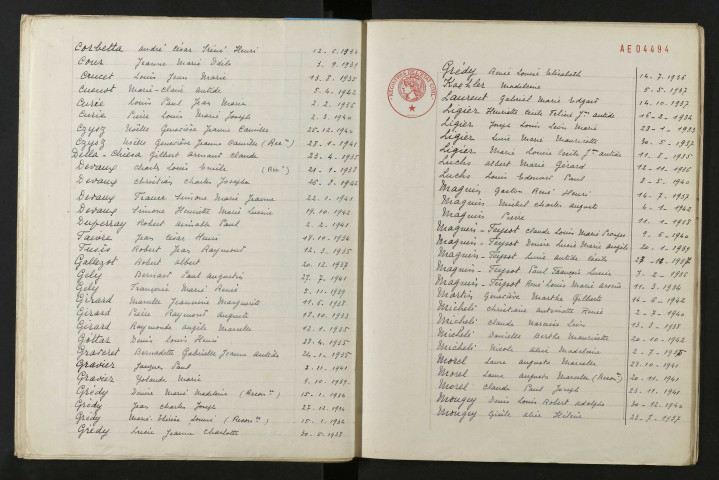 Corbetta André César Iréné Henri
Cour Jeanne Marie Odile
Crucet Louis Jean Marie
Cuenot Marie-Claire Antide 5.4.1942
Curie Louis Paul Jean Maria 2.2.1936
Curie Pierre Louis Marie Joseph 2.3.1940
Czysz Noëlle Geneviève Jeanne Camille 25.12.1940
Czysz Noëlle Geneviève Jeanne Camille (Rec.on) 27.1.1941
Della-Chiesa Gilbert Armand Claude 23.4.1935
Devaux Charles Louis Emile 20.1.1938
Devaux Christian Charles Joseph
Devaux France Simone Marie Jeanne 22.1.1941
Devaux Simone Henriette Marie Lucie 19.10.1942
Duperray Robert Aimable Paul 2.2.1941
Faivre Jean César Henri 17.10.1936
Robert Jean Raymond 12.3.1935
Robert Albert 20.12.1937
Gely Bernard Paul Augustin 27.7.1941
Gely Françoise Marie Renée 3.11.1939
Girard Marcelle Jeannine Marguerite 11.6.1938
Girard Pierre Raymond Auguste 17.10.1933
Girard Raymonde Angèle Marcelle 12.1.1935
Denis Louis Henri 23.4.1935
Bernadette Gabrielle Jeanne Antide 24.1.1935
Gravier Jacques Paul 3.11.1941
Gravier Yolande Marie 9.10.1939
Grédy Denise Marie Madeleine (Recon.ce) 15.1.1936
Grédy Jean Charles Joseph 23.12.1936
Grédy Marie Thérèse (Recon.ce) 15.1.1936
Grédy Lucie Jeanne Charlotte 30.5.1938
AE04494
Grédy Aimée Louise Elisabeth 14.7.1936
Koehler Madeleine 5.5.1937
Laurent Gabriel Marie Edgard 14.10.1937
Ligier Henriette Cécile 16.2.1936
Ligier Joseph Louis Léon Marie 23.1.1933
Ligier Marie Mauricette 30.5.1937
Ligier Marie Louise Cécile Antide 11.8.1935
Luchs Albert Marie Gérard 12.11.1936
Luchs Louis Edouard Paul 8.5.1940
Magnin Gaston René Henri 14.7.1937
Magnin Michel Charles Auguste 4.1.1942
Magnin Pierre 11.1.1937
Magnin-Feysot Claude Louis Marie 9.6.1940
Magnin-Feysot Denise Lucie Marie Angèle 20.1.1939
Magnin-Feysot Lucie Antide Cécile 27.12.1937
Magnin-Feysot Paul François Lucien 7.2.1935
Magnin-Feysot René Louis Marie 11.3.1934
Martin Geneviève Marthe Gilberte 14.6.1942
Micheli Christiane Antoinette Renée 2.7.1940
Micheli Claude Narcisse Léon 13.3.1938
Micheli Danielle Berthe Mauricette 20.10.1942
Micheli Nicole Alice Madeleine
Morel Laure Augusta Marcelle 23.10.1941
Morel Laure Augusta Marcelle (Recon.ce) 20.11.1941
Morel Claude Paul Joseph 23.11.1941
Mougey Denis Louis Robert Adolphe 30.12.1940
Mougey Gisèle Alice Hélène 22.7.1937